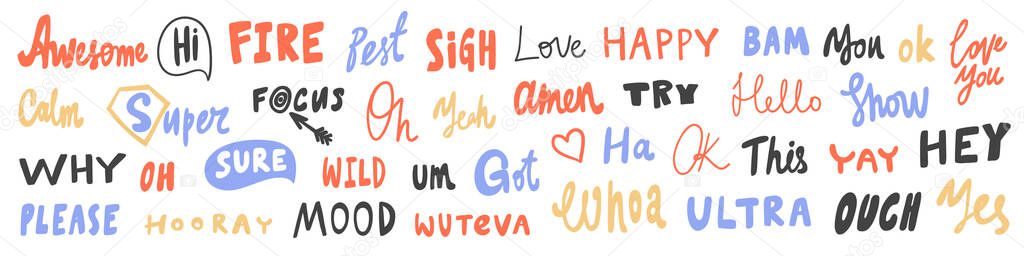 Awesome Hi FIRE Pest SiGH Love HAPPY BAM You ok love you
Calm Super FOCUS Oh Yeah amen TRY Hello Show
WHY OH SURE WILD um Got Ha OK This YAY HEY
PLEASE HOORAY MOOD WUTEVA Whoa ULTRA OUCH Yes